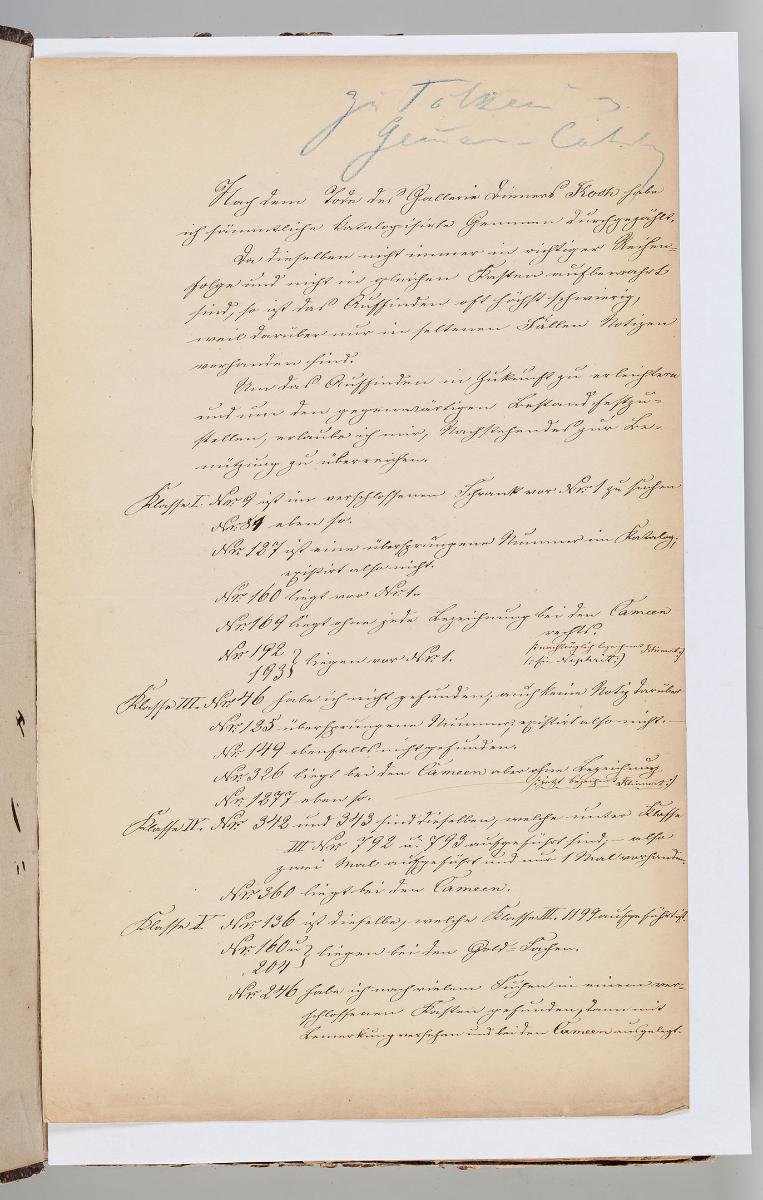 zu Tölken's
Gemmen-Catalog
Nach dem Tode des Gallerie Dieners Koch habe
ich sämmtliche katalogisirte Gemmen durchgezählt.
Da dieselben nicht immer in richtiger Reihen-
folge und nicht in gleichen Kasten aufbewahrt
sind, so ist das Auffinden oft höchst schwierig,
weil darüber nur in seltenen Fällen Notizen
vorhanden sind.
Um das Auffinden in Zukunft zu erleichtern
und um den gegenwärtigen Bestand festzu-
stellen, erlaube ich mir, Nachstehendes zur Be-
nützung zu überreichen.
Klasse I. Nr. 9 ist im verschlossenen Schrank vor Nr. 1 zu suchen
Nr. 84 eben so.
Nr. 127 ist eine übersprungene Nummer im Katalog,
existirt also nicht.
Nr. 160 liegt vor Nr. 1.
Nr. 169 liegt ohne jede Bezeichnung bei den Cameen
rechts.
(: nachträglich bezeichnet :)
(: ein Nephrit :)
Nr. 192
193 } liegen vor Nr. 1.
Klasse III. Nr. 46 habe ich nicht gefunden, auch keine Notiz darüber
Nr. 135 übersprungene Nummer, existirt also nicht. —
Nr. 149 ebenfalls nicht gefunden.
Nr. 326 liegt bei den Cameen aber ohne Bezeichnung
(: jetzt bezeichnet :)
Nr. 1277 eben so.
Klasse IV. Nr. 342 und 343 sind dieselben, welche unter Klasse
III Nr. 792 u. 793 aufgeführt sind, — also
zwei Mal aufgeführt und nur 1 Mal vorhanden.
Nr. 360 liegt bei den Cameen.
Klasse V. Nr. 136 ist dieselbe, welche Klasse III. 1199 aufgeführt ist.
Nr. 160 u
204 } liegen bei den Gold-Sachen.
Nr. 246 habe ich nach vielem Suchen in einem ver-
schlossenen Kasten gefunden, dann mit
Bemerkung versehen und bei den Cameen ausgelegt.